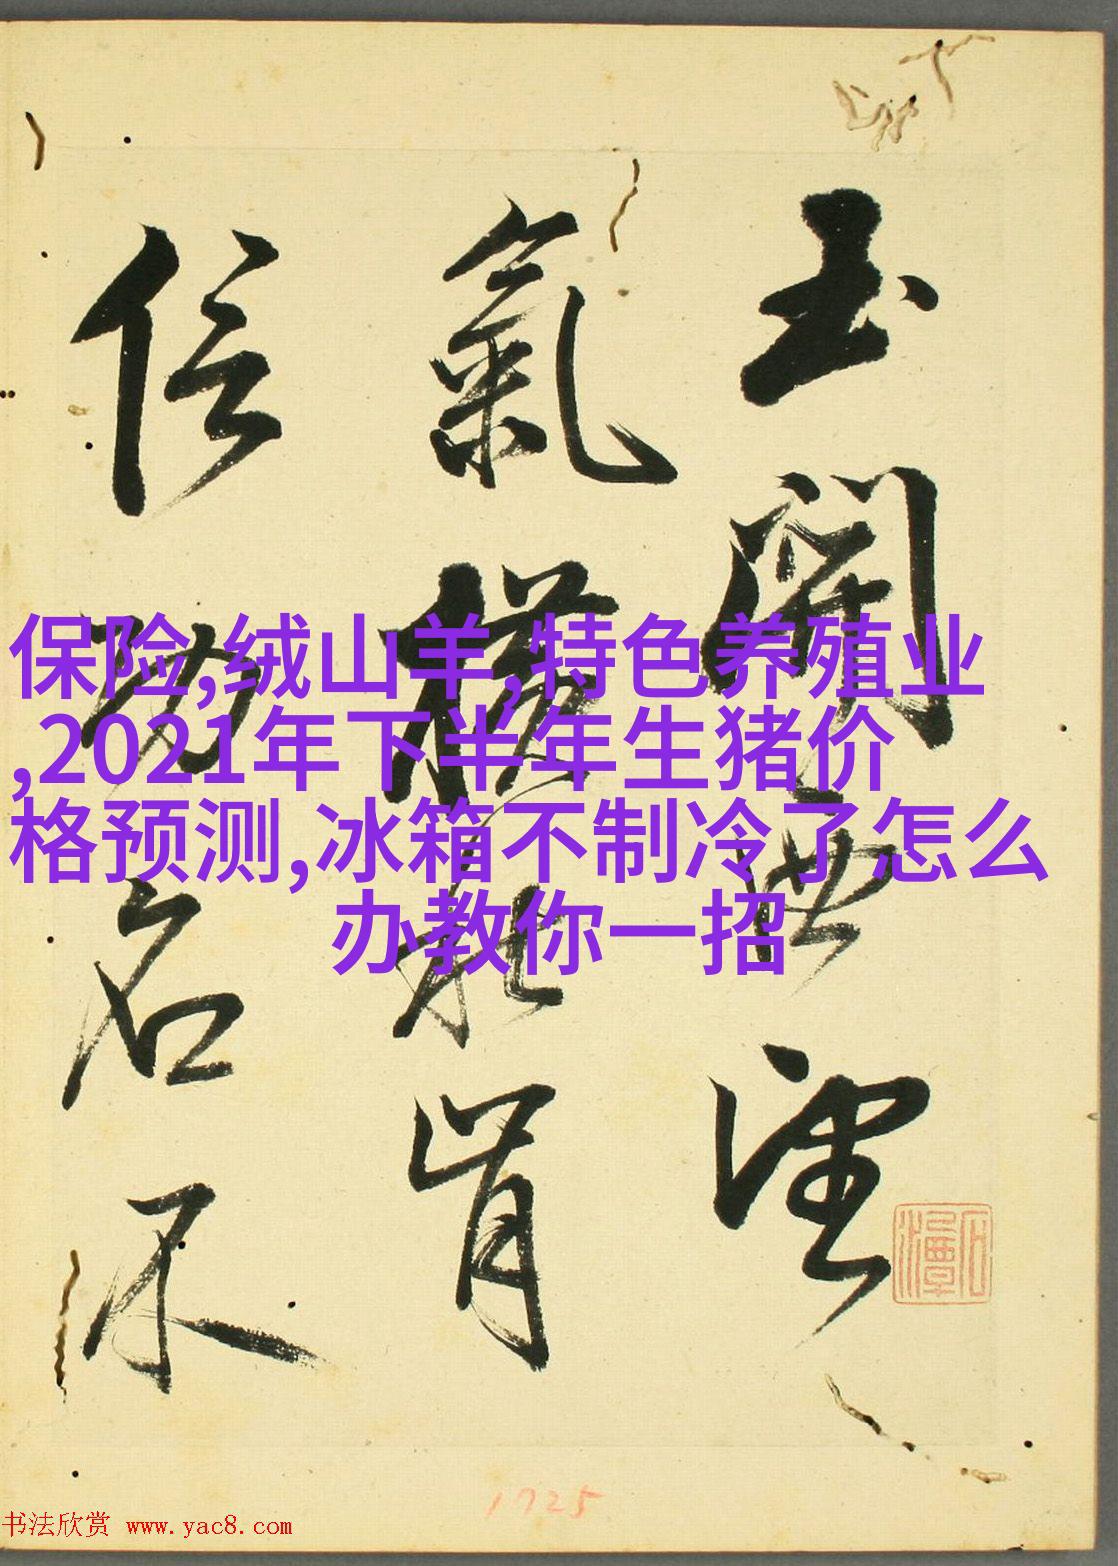 玉關西望
氣橫秋肯
信功名不
保险,绒山羊,特色养殖业
,2021年下半年生猪价
格预测,冰箱不制冷了怎么
办教你一招
1725
书法欣赏 www.yac8.com